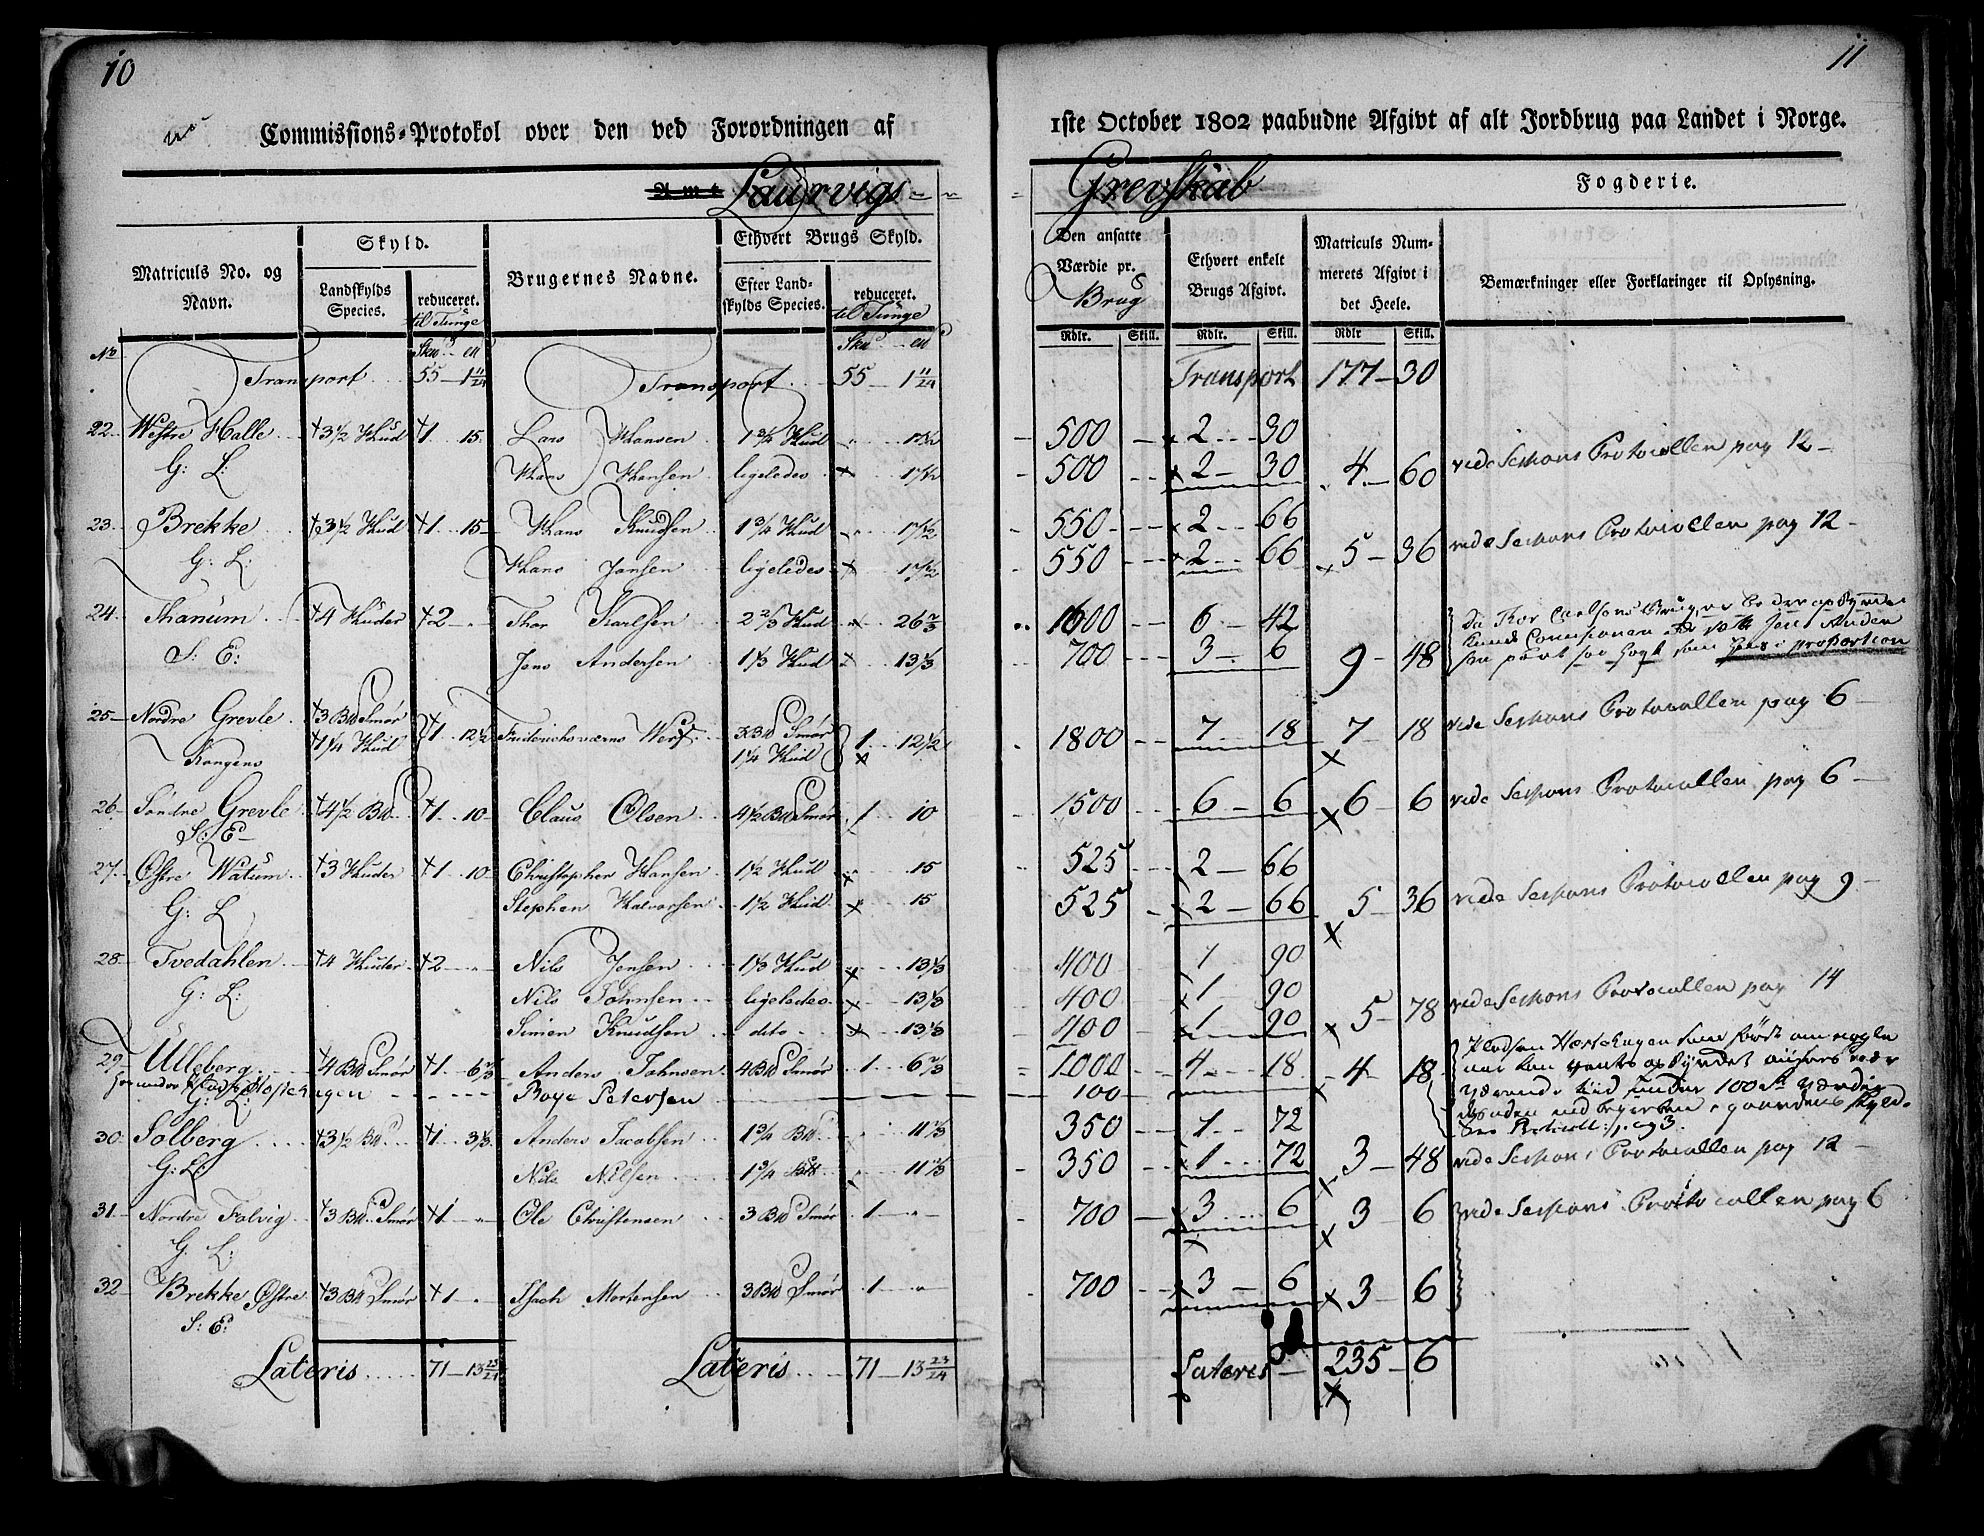 10
Commissions-Protokol over den ved Forordningen af
Amt Laurvigs
Matriculs No. og Navn.
Skyld.
Landskylds Species.
reduceret.
til Tunge
Brugernes Navne.
Ethvert Brugs Skyld.
Efter Landskylds Species.
reduceret.
til Tunge
No
Transport 55 - 1 11/24 Transport 55 - 1 11/24
22. Westre Halle +3 1/2 Hud +1 15 Lars Hansen 1 3/4 Hud 17 1/2
G: L: Hans Hansen ligeledes 17 1/2
23. Brekke +3 1/2 Hud +1 15 Hans Knudsen 1 3/4 Hud 17 1/2
G: L: Hans Jansen ligeledes 17 1/2
24. Thanum +4 Huder +2 Thor Karlsen 2 2/3 Hud 26 2/3
S: E: Jens Andersen 1 1/3 Hud 13 1/3
25 Nordre Grevle +3 Bd Smør +1 12 1/2 Friderichsværns Werft 3 Bd Smør 1 12 1/2
Kongens +1 1/4 Hud 1 1/4 Hud
26 Søndre Grevle +4 1/2 Bd +1 10 Claus Olsen 4 1/2 Bd Smør 1 10
S: E
27. Østre Watum +3 Huder +1 10 Christopher Hansen 1 1/2 Hud 15
G: L Stephen Halvorsen 1 1/2 Hud 15
28 Tvedahlen +4 Huder +2 Nils Jensen 1 1/3 Hud 13 1/3
G: L: Nils Johnsen ligeledes 13 1/3
Simen Knudsen dito 13 1/3
29 Ulleberg +4 Bd Smør +1 6 2/3 Anders Johnsen 4 Bd Smør 1 6 2/3
G: L: Boye Petersen
30 Solberg +3 1/2 Bd +1 3 1/3 Anders Jacobsen 1 3/4 Bd 11 2/3
G: L Nils Nilsen 1 3/4 Bd 11 2/3
31 Nordre Falvig +3 Bd Smør +1 Ole Christensen 3 Bd Smør 1
G: L:
32 Brekke Østre +3 Bd Smør +1 Isach Mortensen 3 Bd Smør 1
S: E:
Lateris 71 - 13 23/24 Lateris 71 - 13 23/24
11
1ste October 1802 paabudne Afgivt af alt Jordbrug paa Landet i Norge.
Grevskab Fogderie.
Den ansatte Værdie pr. Brug
Ethvert enkelt Brugs Afgivt.
Matriculs Nummerets Afgivt i det Heele.
Bemærkninger eller Forklaringer til Oplysning.
Rdlr. Skill. Rdlr. Skill. Rdlr Skill.
Transport 177 - 30
500 2 30
500 2 - 30 4 - 60 vide Sessions Protocollen pag 12
550 2 66
550 2 66 5 - 36 vide Sessions Protocollen pag 12
1600 6 - 42
700 3 6 9 - 48
1800 7 18 7 - 18 vide Sessions Protocollen pag 6
1500 6 - 6 6 6 vide Sessions Protocollen pag 6
525 2 - 66
525 2 - 66 5 - 36 vide Sessions Protocollen pag 9
400 1 90
400 1 90
400 1 90 5 - 78 vide Sessions Protocollen pag 14
1000 4 18 4 - 18
100
350 1 72
350 1 72 3 - 48 vide Sessions Protocollen pag 12
700 3 6 3 6 vide Sessions Protocollen pag 6
700 3 - 6 3 - 6
Lateris 235 - 6